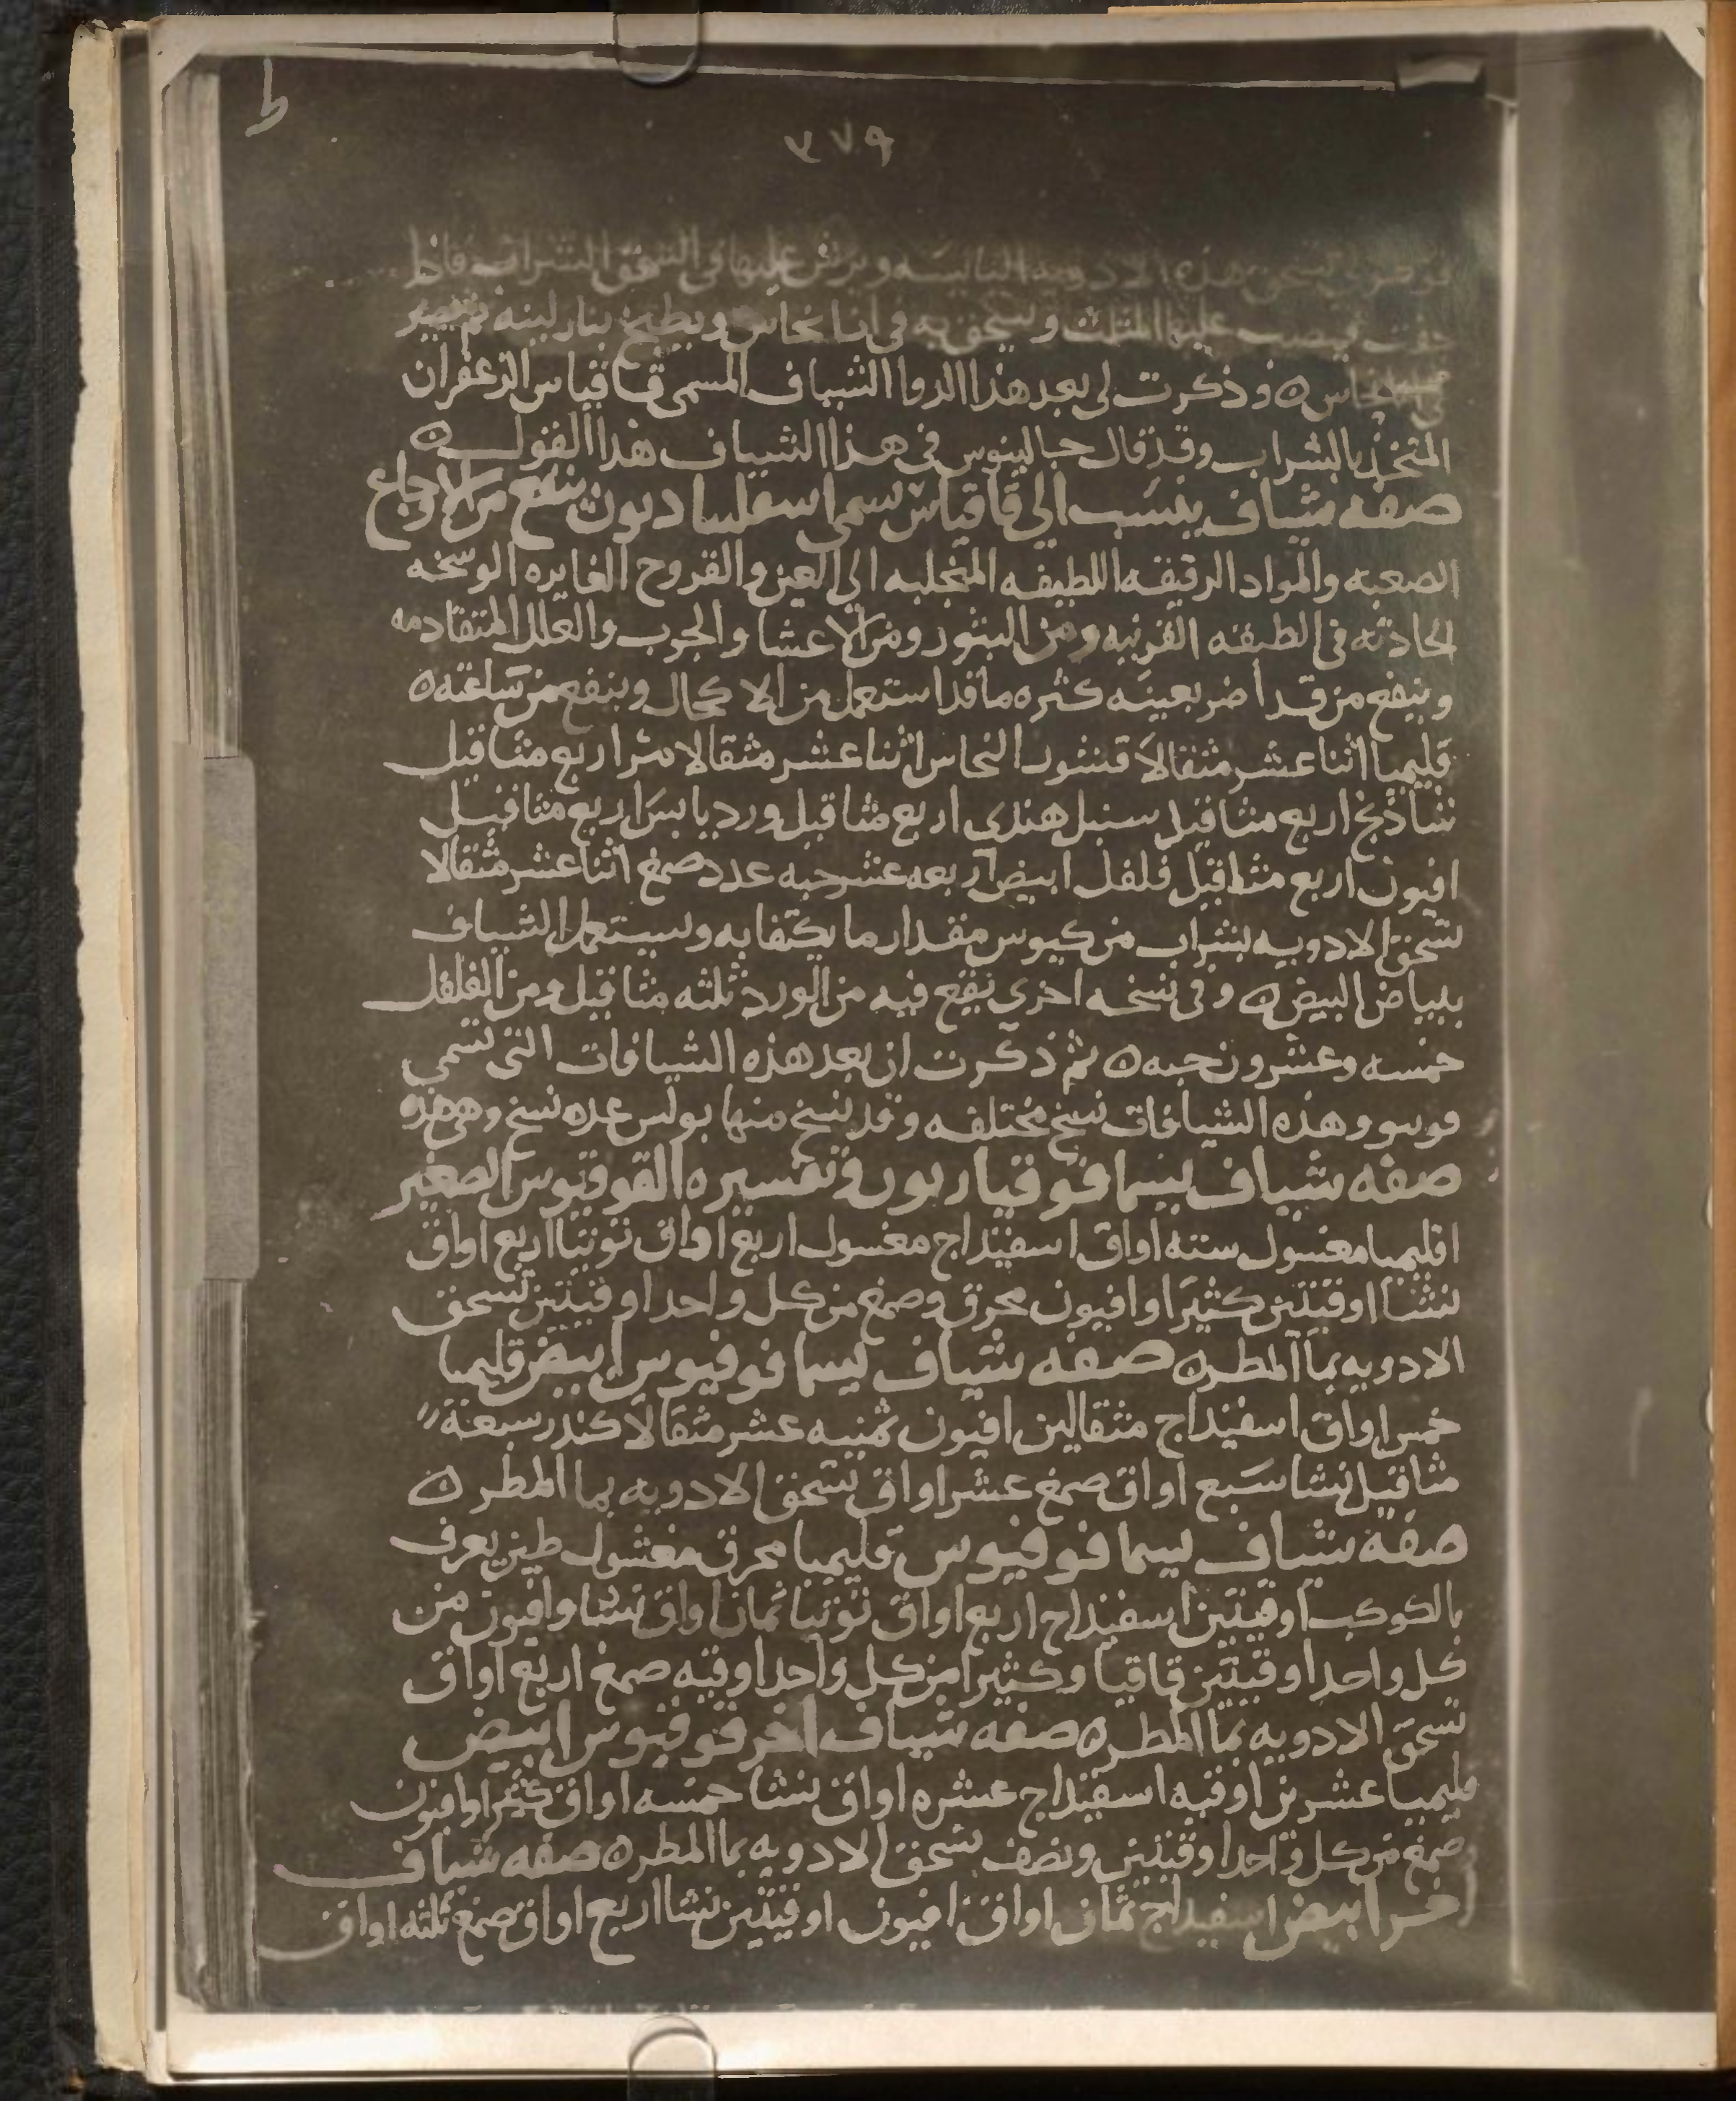 ٣٧٩
تسحق هذه الادويه اليابسه ويرش عليها في السحق الشراب فاذا
جفت فيصب عليها المثلث ويسحق به في انا نحاس ويطبخ بنار لينه ثم يصير
في النحاس ه وذكرت لي بعد هذا الدوا الشياف المسمى قاقياس الزعفران
المتخذ بالشراب وقد قال جالينوس في هذا الشياف هذا القول ه
صفه شياف ينسب الى قاقياس يسمى ينفع من الاوجاع
الصعبه والمواد الرقيقه اللطيفه المتجلبه الى العين والقروح الغايره الوسخه
الحادثه في الطبقه القرنيه ومن البثور ومن الاعشا والجرب والعلل المتقادمه
وينفع من قد اضر بعينه كثره ما قد استعمل من الاكحال وينفع من ساعته ه
قليميا اثنا عشر مثقالا قشور النحاس اثنا عشر مثقالا مر اربع مثاقيل
شاذنج اربع مثاقيل سنبل هندى اربع مثاقيل ورد يابس اربع مثاقيل
افيون اربع مثاقيل فلفل ابيض اربعه عشر حبه عدد صمغ اثنا عشر مثقالا
تسحق الادويه بشراب من كيوس مقدار ما يكتفا به ويستعمل الشياف
ببياض البيض ه وفي نسخه اخرى يقع فيه من الورد ثلثه مثاقيل ومن الفلفل
خمسه وعشرون حبه ه ثم ذكرت ان بعد هذه الشيافات التي تسمى
وهذه الشيافات نسخ مختلفه وقد نسخ منها بولس عده نسخ وهي هذه
صفه شياف يسما قوقياريون وتفسيره القوقنوس الصغير
اقليميا مغسول سته اواق اسفيداج مغسول اربع اواق توتيا اربع اواق
نشا اوقيتين كثيرا وافيون محرق وصمغ من كل واحد اوقيتين تسحق
الادويه بما المطر ه صفه شياف يسما قوقيوس ابيض قليميا
خمس اواق اسفيداج مثقالين افيون ثمنيه عشر مثقالا كندر سبعة
مثاقيل نشا سبع اواق صمغ عشر اواق تسحق الادويه بما المطر ه
صفه شياف يسما قوقيوس قليميا محرق مغسول طين يعرف
بالكوكب اوقيتين اسفيداج اربع اواق توتيا ثمان اواق نشا وافيون من
كل واحد اوقيتين قاقيا وكثيرا من كل واحد اوقيه صمغ اربع اواق
تسحق الادويه بما المطر ه صفه شياف اخر قوقيوس ابيض
قليميا عشرين اوقيه اسفيداج عشره اواق نشا خمسه اواق كثيرا وافيون
صمغ من كل واحد اوقيتين ونصف تسحق الادويه بما المطر ه صفه شياف
اخر ابيض اسفيداج ثمان اواق افيون اوقيتين نشا اربع اواق صمغ ثلثه اواق